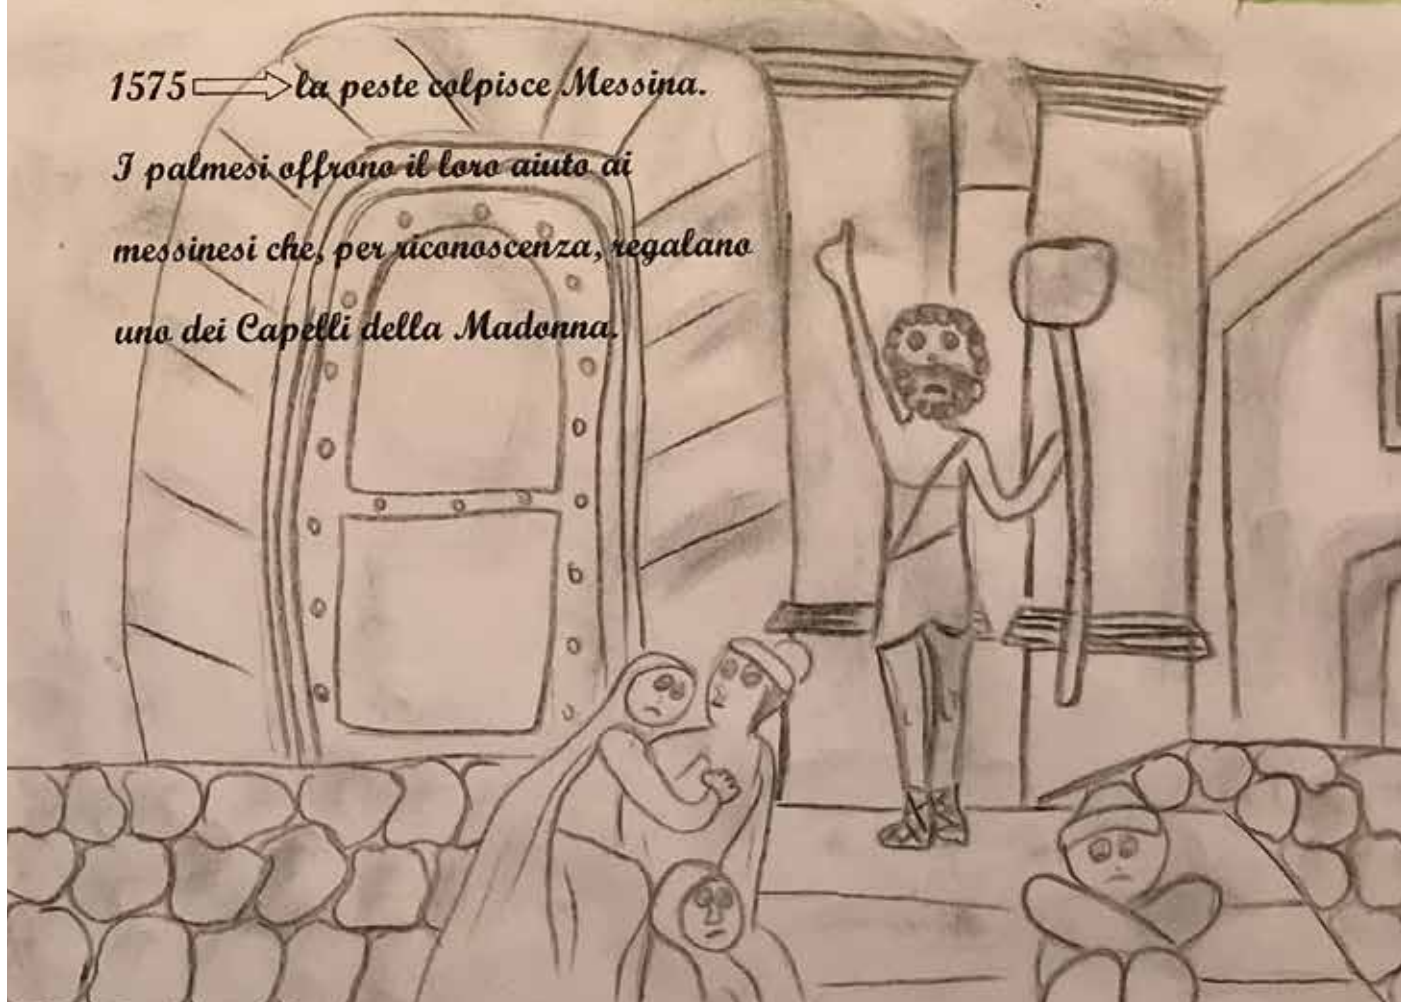 1575 la peste colpisce Messina.
I palmesi offrono il loro aiuto ai
messinesi che, per riconoscenza, regalano
uno dei Capelli della Madonna.